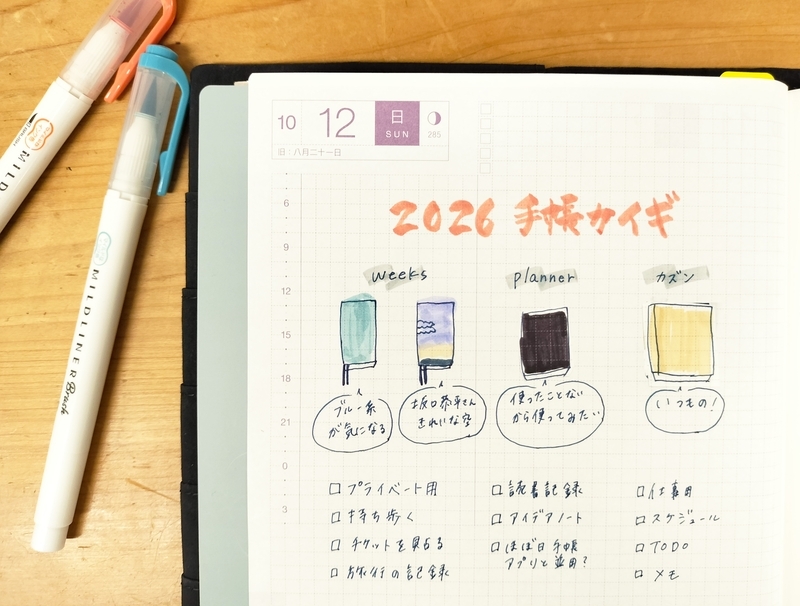 10 12 日 SUN 285
旧：八月二十一日
2026 手帳カイギ
weeks
planner
カズン
ブルー系
が気になる
坂口恭平さん
きれいな空
使ったことない
から使ってみたい
いつもの！
□プライベート用
□持ち歩く
□チケットを貼る
□旅行の記録
□読書記録
□アイデアノート
□ほぼ日手帳
アプリと並用？
□仕事用
□スケジュール
□TODO
□メモ
6
9
12
15
18
21
0
3
MILD
MILDLINER Brush